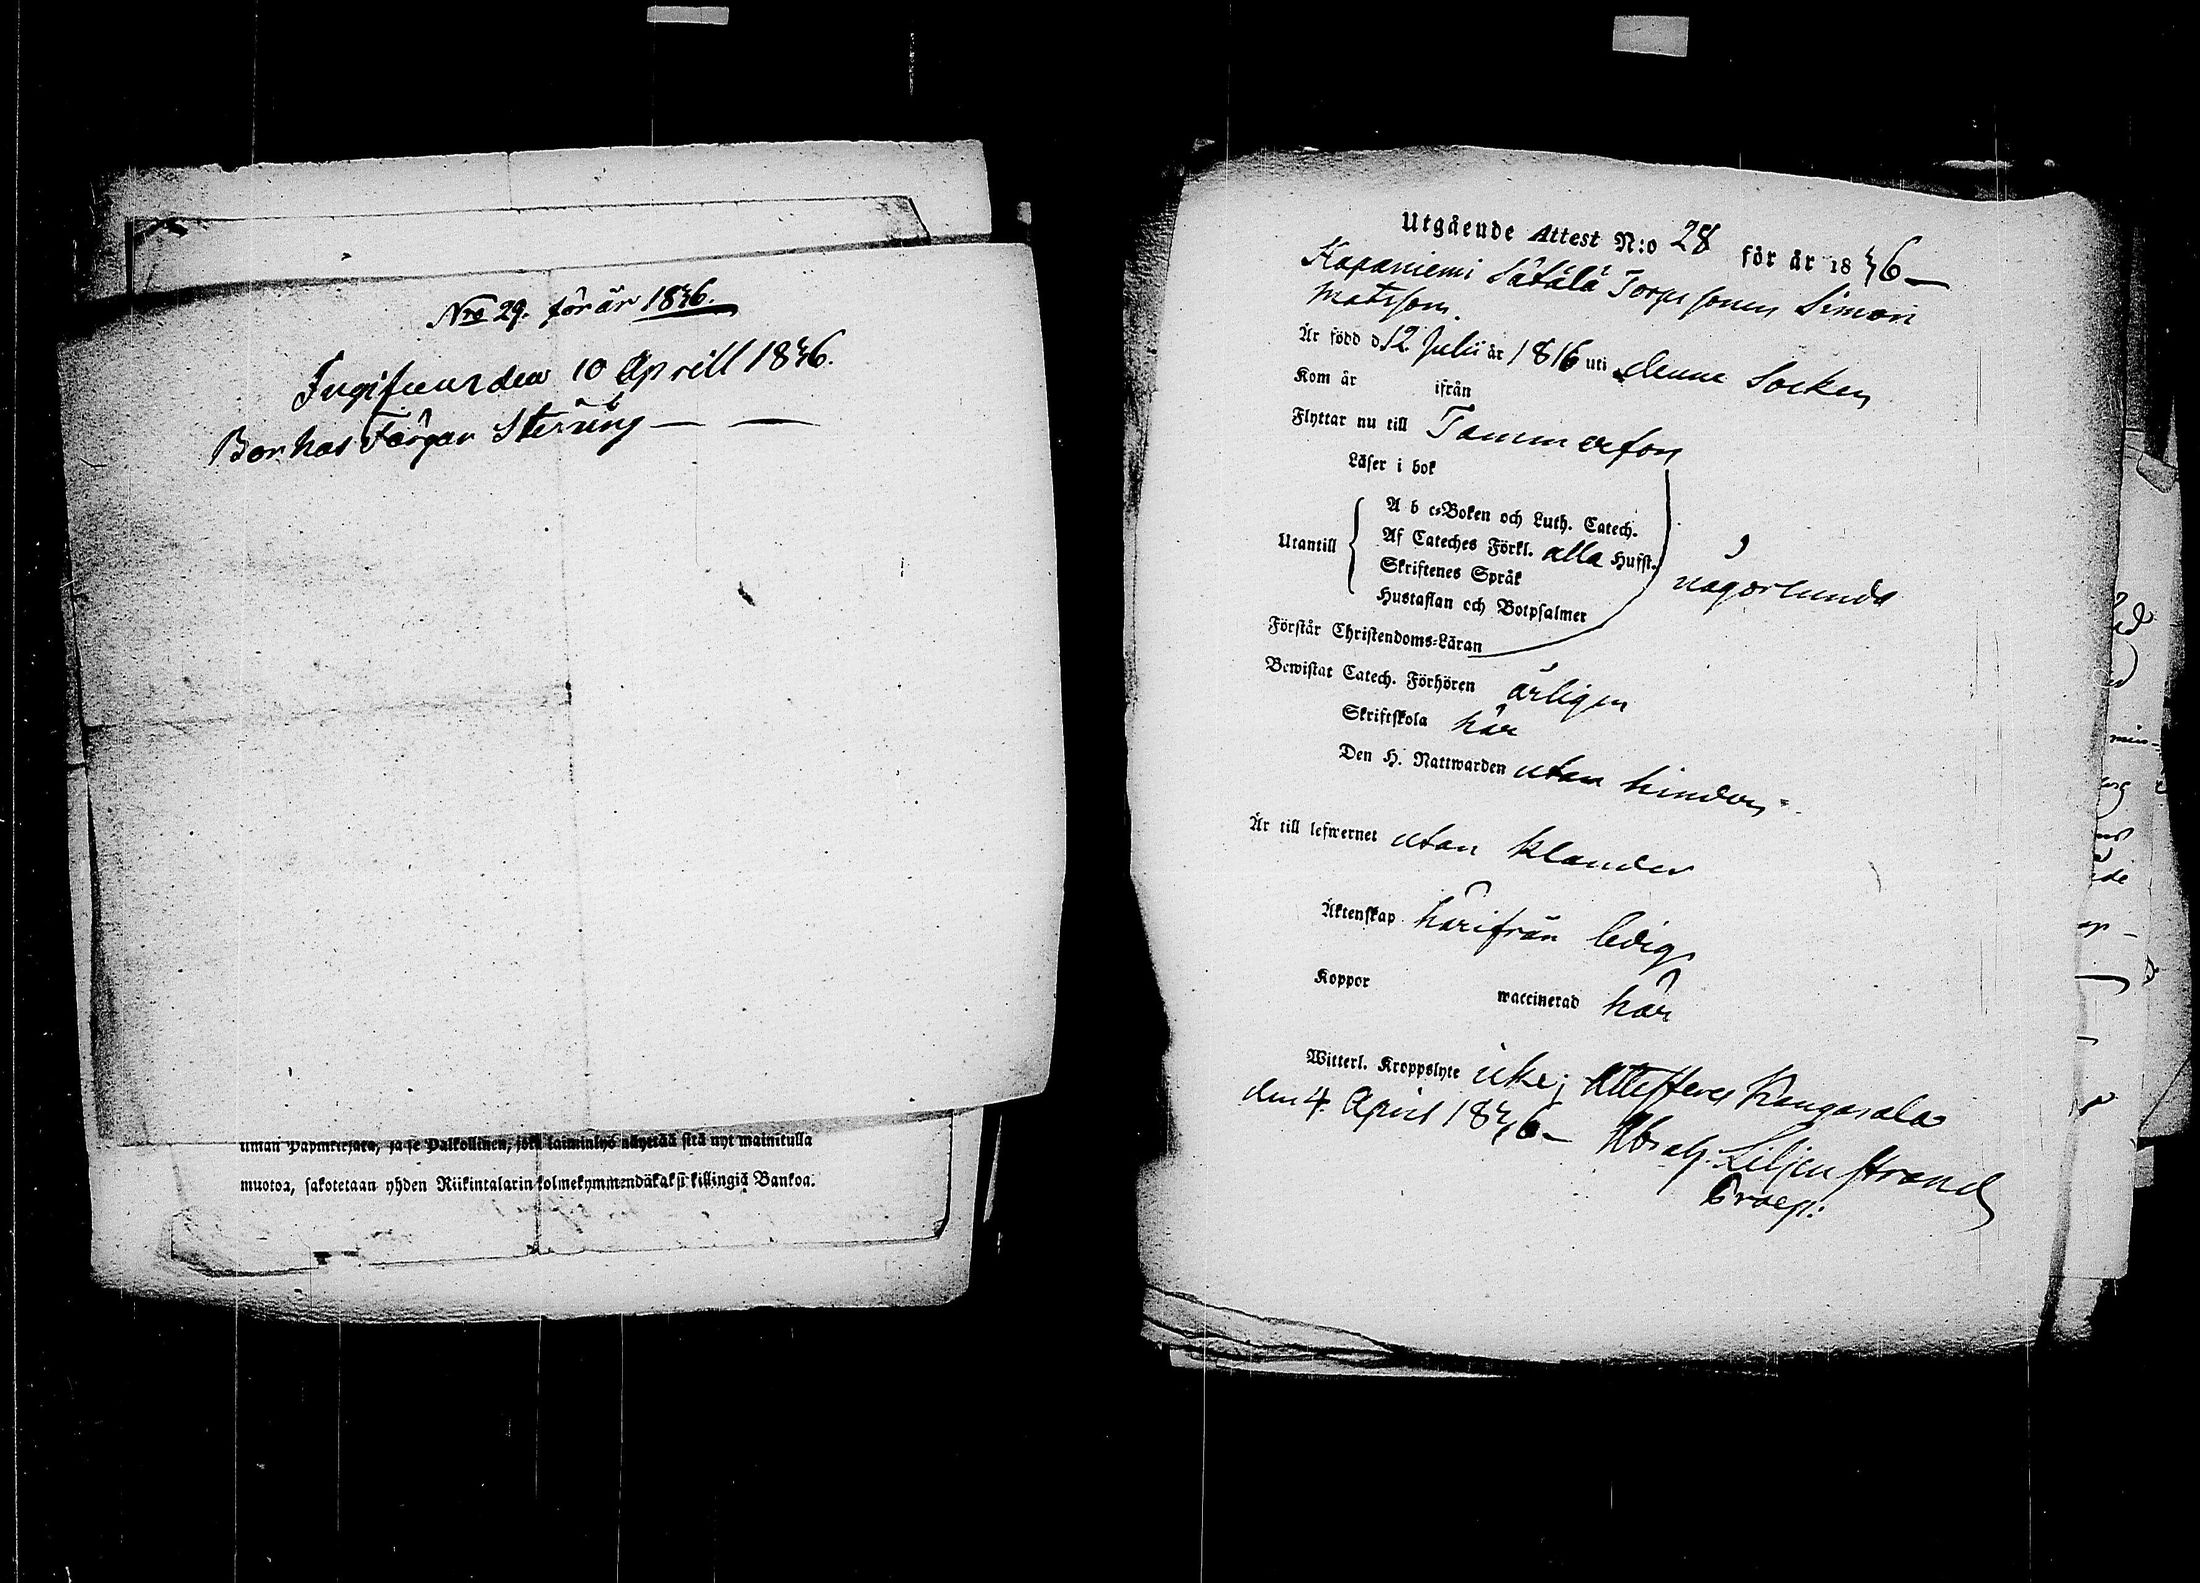 Nro 29. för år 1836.
Ingifven den 10 Aprill 1836.
Bor hos Färgar
ilman Papinkirjata, ja se Palkollinen, joka laiminlyö näyttää sitä nyt mainitulla
muotoa, sakotetaan yhden Riikintalarin kolmekymmendäkaksi killingiä Bankoa.
Utgående Attest N:o 28 för år 1836
Kapaniemi Sätälä Torp sonen Simon
Matsson.
Är född d 12 Julii år 1816 uti denne Socken
Kom år ifrån
Flyttar nu till Tammerfors
Läser i bok
Utantill
A b c-Boken och Luth. Catech.
Af Cateches Förkl. alla Hufst.
Skriftenes Språk
Hustaflan och Botpsalmer
någorlunda
Förstår Christendoms-Läran
Bewistat Catech. Förhören årligen
Skriftskola här
Den H. Nattwarden utan hinder
Är till lefwernet utan klander
Äktenskap härifrån ledig
Koppor waccinerad här
Witterl. Kroppslyte icke; Attesteras Kangasala
den 4 April 1836 Abrah. Liljenstrand
Praep: